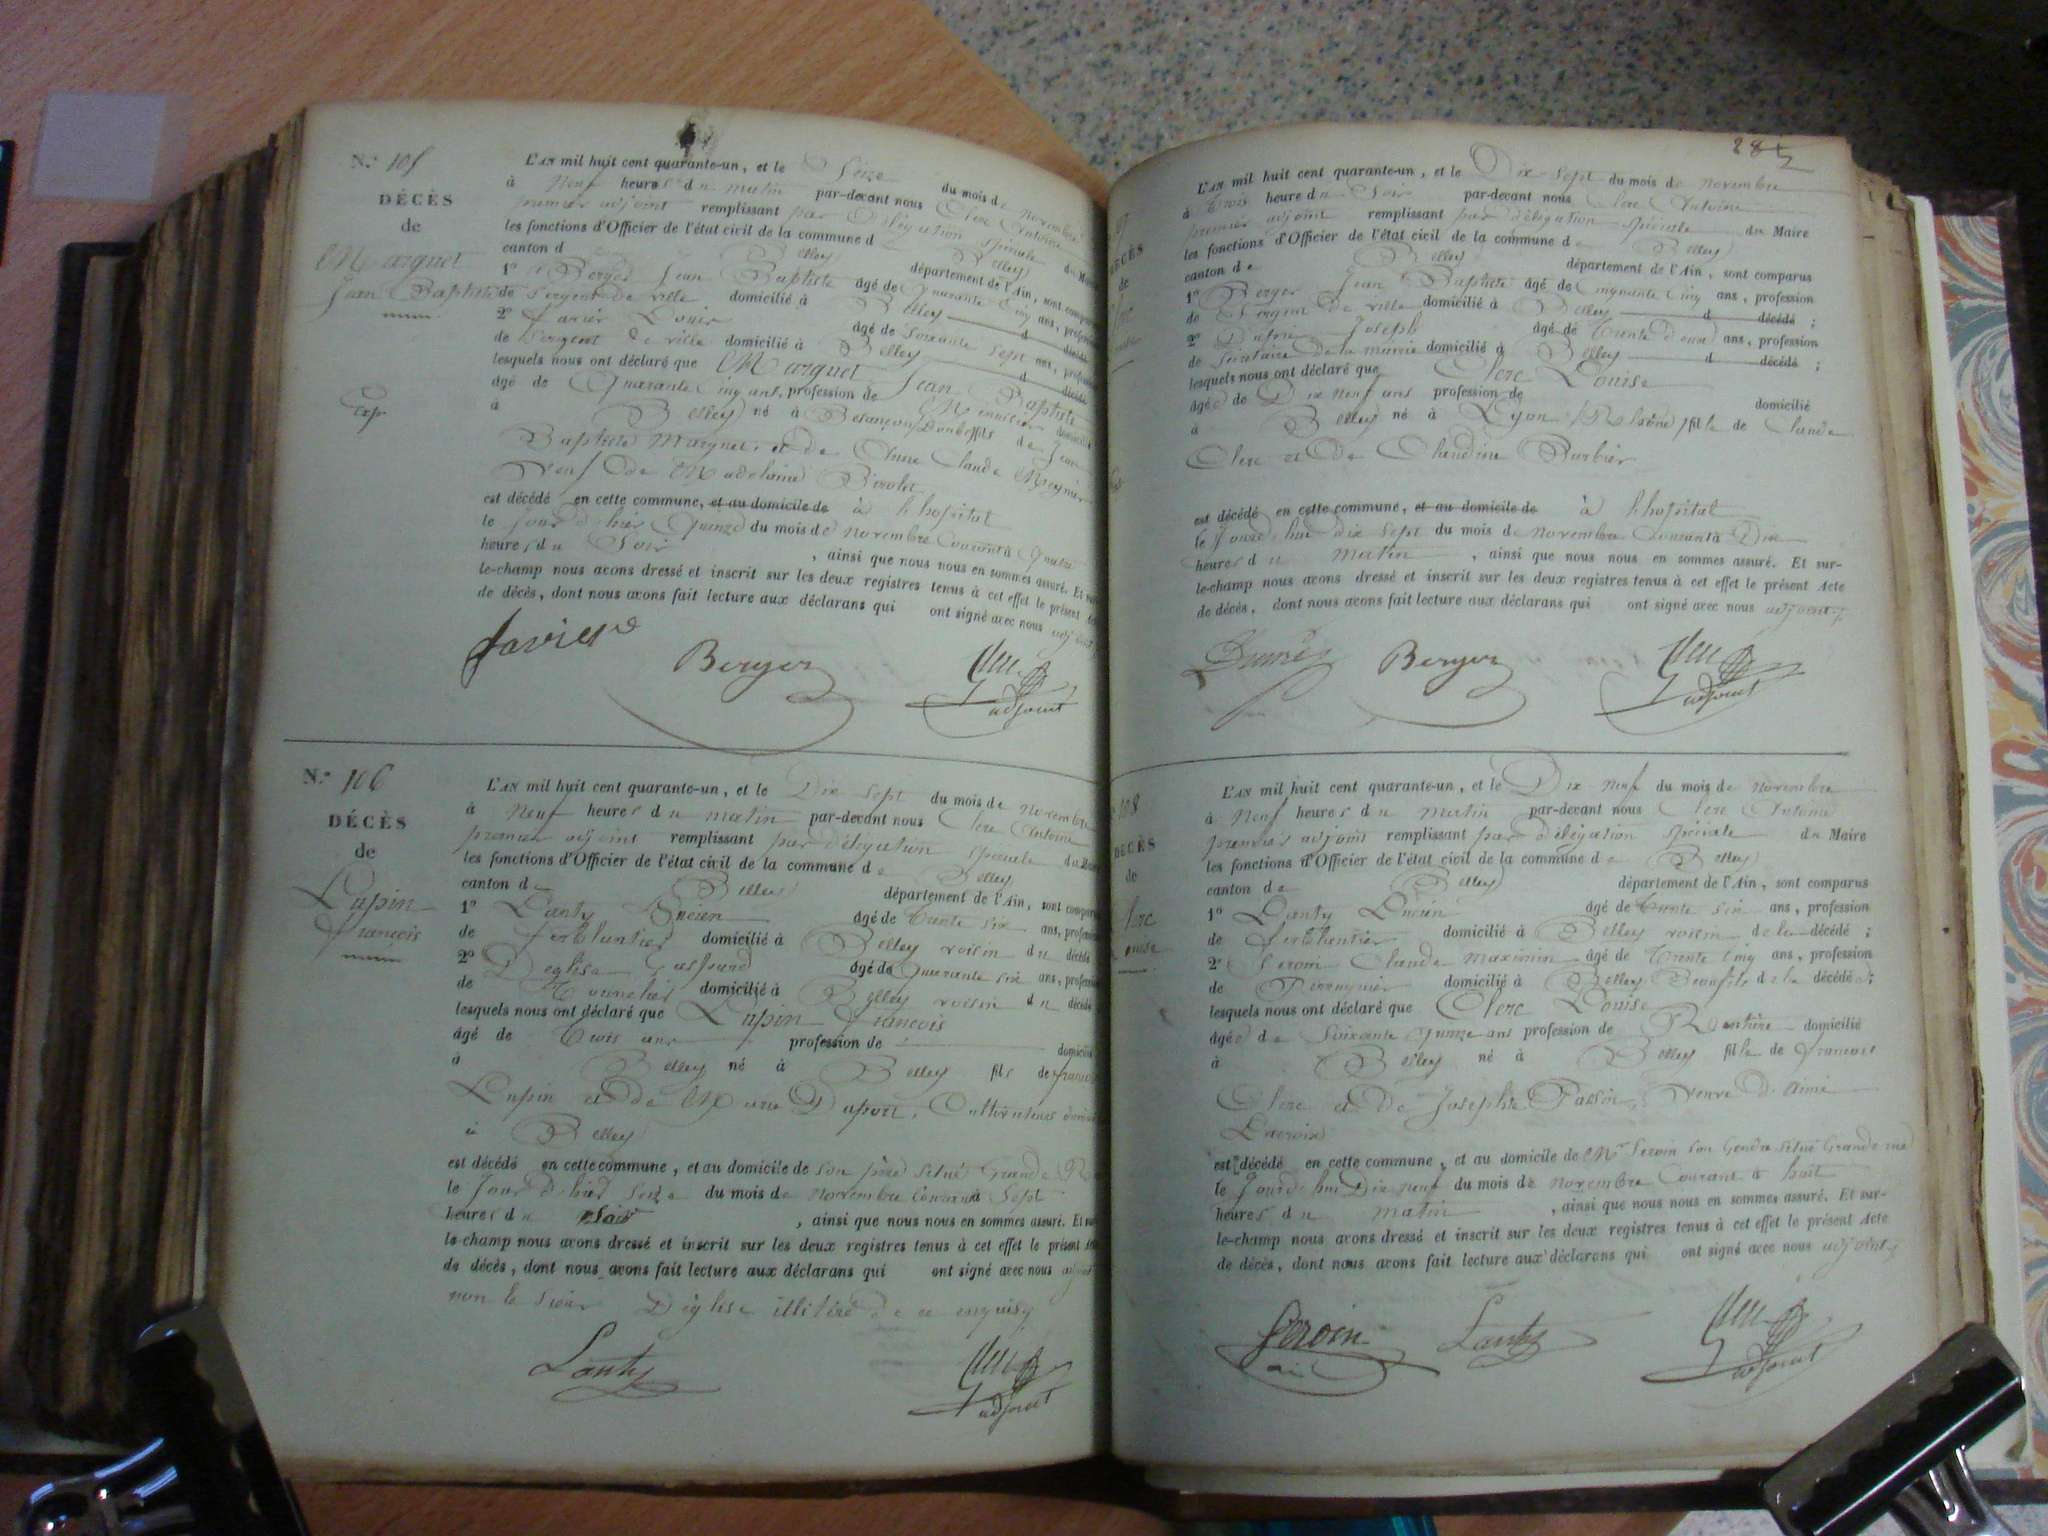 N.° 105
DÉCÈS
de
Marguet
Jean Baptiste
L'AN mil huit cent quarante-un, et le Seize du mois de novembre
à Neuf heures du matin par-devant nous Clerc Antoine
premier adjoint remplissant par délégation spéciale du Maire
les fonctions d'Officier de l'état civil de la commune d Belley
canton d Belley département de l'Ain, sont comparus
1° Berger Jean Baptiste âgé de Cinq ans, profession
de Sergent de ville domicilié à Belley d décédé
2° Louis âgé de Soixante sept ans, profession
de Sergent de ville domicilié à Belley d décédé
lesquels nous ont déclaré que Marguet Jean Baptiste
âgé de Quarante Cinq ans, profession de domicilié
à Belley né à Besançon Doubs fils de Jean
Baptiste Marguet, et de Anne Claude
Veuf de Madelaine
est décédé en cette commune, et au domicile de à l'hopital
le jour d'hier Quinze du mois de novembre Courant à Quatre
heures du Soir , ainsi que nous nous en sommes assuré. Et sur-
le-champ nous avons dressé et inscrit sur les deux registres tenus à cet effet le présent Acte
de décès, dont nous avons fait lecture aux déclarans qui ont signé avec nous adjoint
Berger
adjoint
N.° 106
DÉCÈS
de
Lupin
François
L'AN mil huit cent quarante-un, et le Dix Sept du mois de Novembre
à Neuf heures du matin par-devant nous Clerc Antoine
premier adjoint remplissant par délégation spéciale du Maire
les fonctions d'Officier de l'état civil de la commune de Belley
canton de Belley département de l'Ain, sont comparus
1° Lanty Lucien âgé de Trente six ans, profession
de ferblantier domicilié à Belley voisin du décédé
2° Deglise Gaspard âgé de Quarante six ans, profession
de Tonnelier domicilié à Belley voisin du décédé
lesquels nous ont déclaré que Lupin François
âgé de Trois ans profession de domicilié
à Belley né à Belley fils de françois
Lupin et de Marie Duport, Cultivateurs
à Belley
est décédé en cette commune, et au domicile de son père situé Grande Rue
le Jour d'hier Seize du mois de Novembre Courant à Sept
heures du Soir , ainsi que nous nous en sommes assuré. Et sur-
le-champ nous avons dressé et inscrit sur les deux registres tenus à cet effet le présent Acte
de décès, dont nous avons fait lecture aux déclarans qui ont signé avec nous adjoint
non le Sieur Déglise illitéré de ce enquis
Lanty
adjoint
DÉCÈS
de
L'AN mil huit cent quarante-un, et le Dix Sept du mois de Novembre
à Trois heure du Soir par-devant nous Clerc Antoine
premier adjoint remplissant par délégation spéciale du Maire
les fonctions d'Officier de l'état civil de la commune de Belley
canton de Belley département de l'Ain, sont comparus
1° Berger Jean Baptiste âgé de Cinquante Cinq ans, profession
de Sergent de ville domicilié à Belley d décédé ;
2° Joseph âgé de Trente deux ans, profession
de secrétaire de la mairie domicilié à Belley d décédé ;
lesquels nous ont déclaré que Clerc Louise
âgée de Dix Neuf ans profession de domicilié
à Belley né à Lyon (Rhône) fille de Claude
Clerc et de Claudine Barbier
est décédé en cette commune, et au domicile de à l'hopital
le Jourd'hui dix sept du mois de novembre Courant à Dix
heures du matin , ainsi que nous nous en sommes assuré. Et sur-
le-champ nous avons dressé et inscrit sur les deux registres tenus à cet effet le présent Acte
de décès, dont nous avons fait lecture aux déclarans qui ont signé avec nous adjoint
Berger
adjoint
108
DÉCÈS
de
L'AN mil huit cent quarante-un, et le Dix neuf du mois de novembre
à Neuf heures du matin par-devant nous Clerc Antoine
premier adjoint remplissant par délégation spéciale du Maire
les fonctions d'Officier de l'état civil de la commune de Belley
canton de Belley département de l'Ain, sont comparus
1° Lanty Lucien âgé de Trente six ans, profession
de ferblantier domicilié à Belley voisin de la décédé ;
2° Seroin Claude maximin âgé de Trente Cinq ans, profession
de domicilié à Belley Beaufils de la décédée ;
lesquels nous ont déclaré que Clerc Louise
âgée de Soixante Quinze ans profession de Rentière domicilié
à Belley né à Belley fille de françois
Clerc et de Josephte Passin, Veuve d'Aimé
Lacroix
est décédé en cette commune, et au domicile de Mr Seroin son Gendre situé Grande rue
le Jourd'hui Dix neuf du mois de novembre Courant à huit
heures du matin , ainsi que nous nous en sommes assuré. Et sur-
le-champ nous avons dressé et inscrit sur les deux registres tenus à cet effet le présent Acte
de décès, dont nous avons fait lecture aux déclarans qui ont signé avec nous adjoint
Seroin
Lanty
adjoint